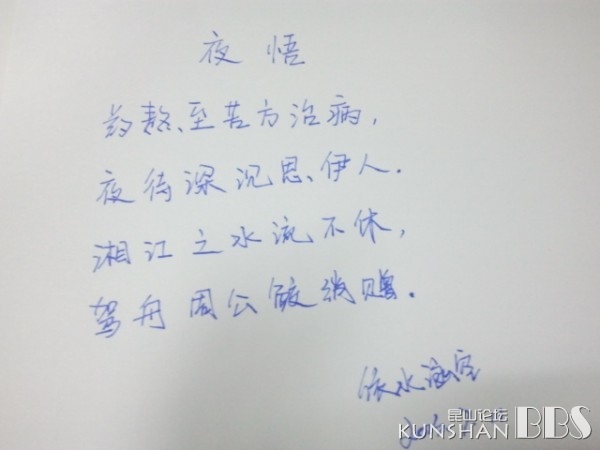 夜悟
药熬、至苦方治病,
夜待深沉思、伊人.
湘江之水流不休,
驾舟周公
依水
昆山论坛
KUNSHAN BBS